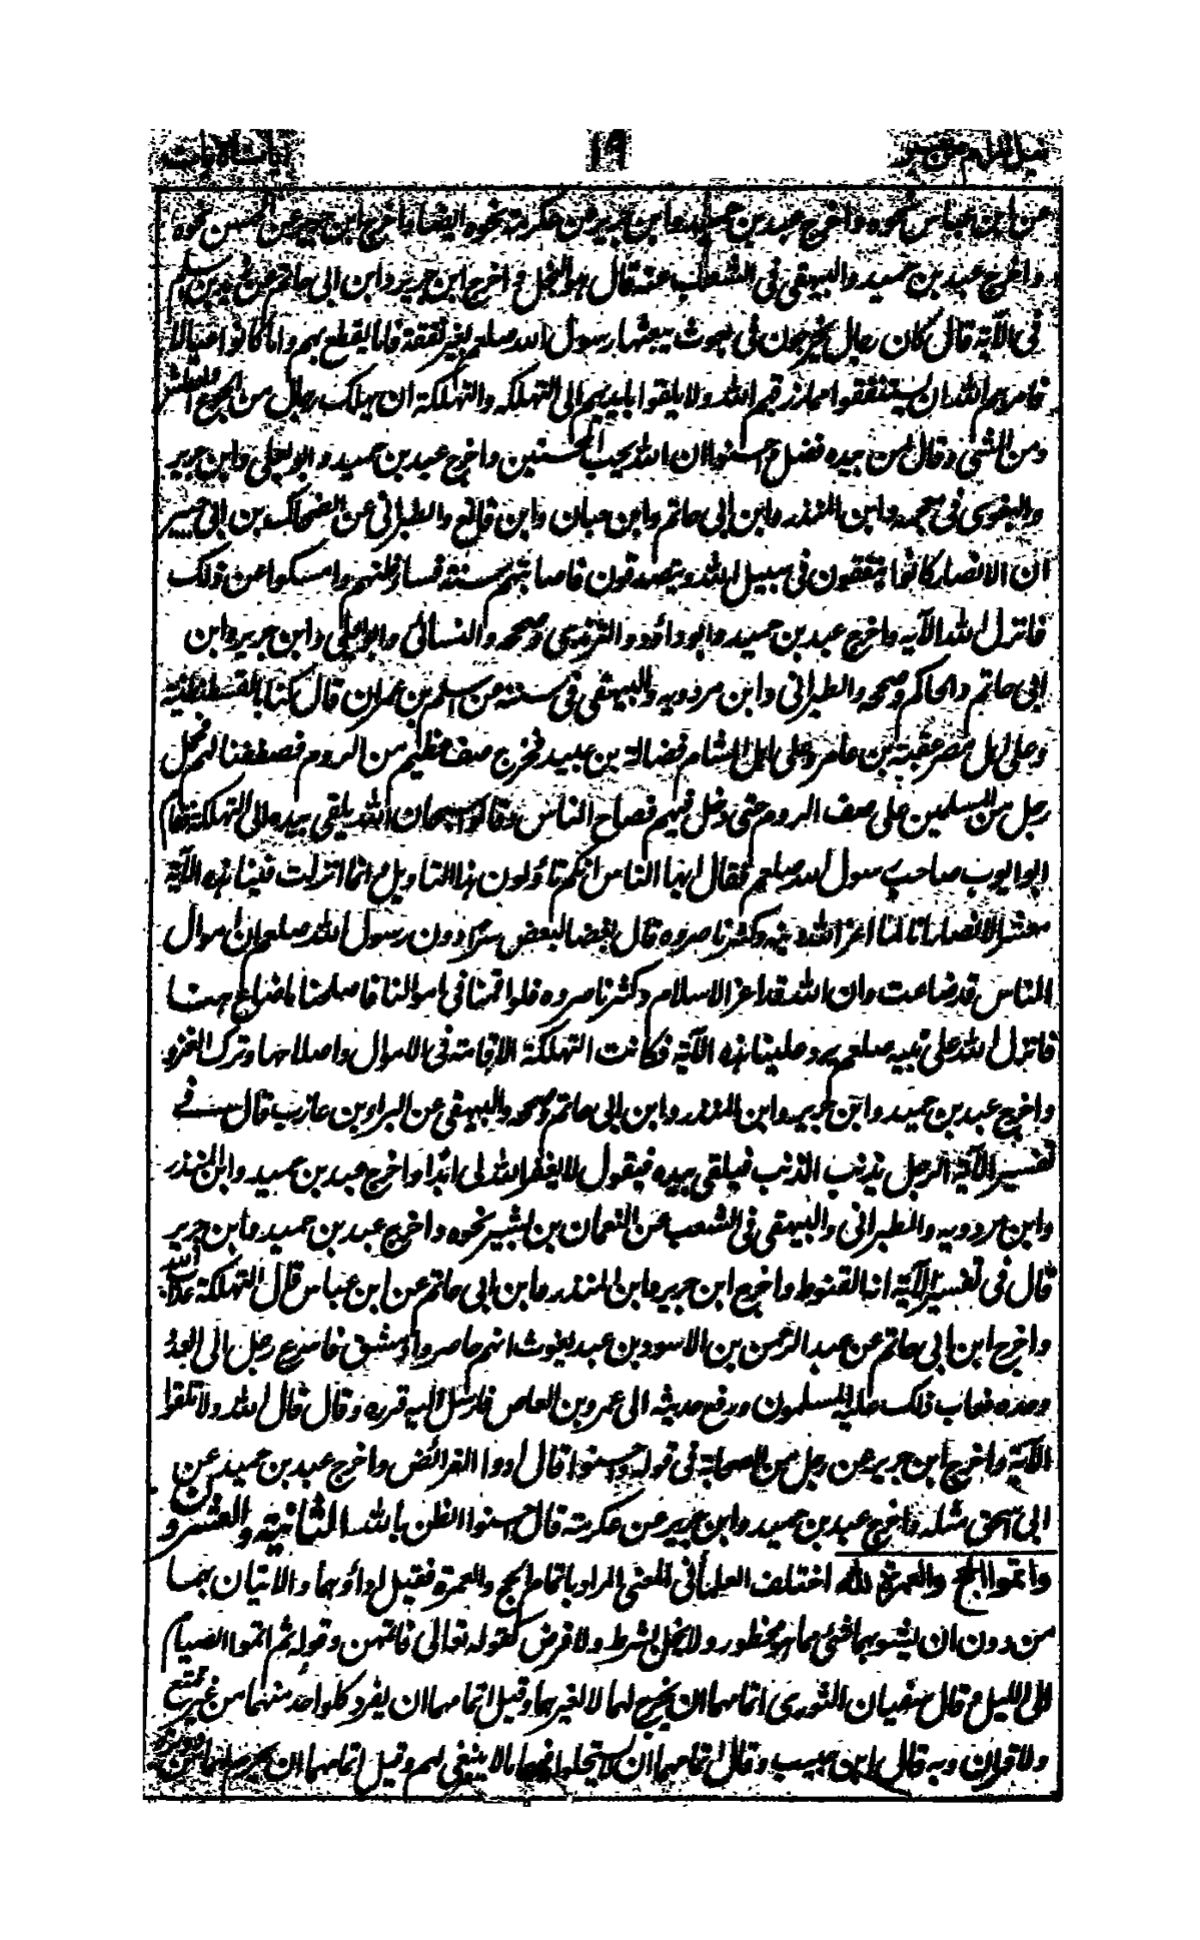 نيل المرام من تفسير ١٩ آيات الاحكام
عن ابن عباس نحوه واخرج عبد بن حميد وابن جرير عن عكرمة نحوه ايضا واخرج ابن جرير عن الحسن نحوه
واخرج عبد بن حميد والبيهقى فى الشعب عنه قال هو البخل واخرج ابن جرير وابن ابى حاتم عن زيد بن اسلم
فى الآية قال كان رجال يخرجون فى بعوث يبعثها رسول الله صلعم بغير نفقة فاما يقطع بهم واما كانوا عيالا
فامرهم الله ان يستنفقوا مما رزقهم الله ولا يلقوا بايديهم الى التهلكة والتهلكة ان يهلك رجال من الجوع والعطش
ومن المشى وقال لمن بيده فضل واحسنوا ان الله يحب المحسنين واخرج عبد بن حميد وابو يعلى وابن جرير
والبغوى فى معجمه وابن المنذر وابن ابى حاتم وابن حبان وابن قانع والطبرانى عن الضحاك بن ابى جبير
ان الانصار كانوا ينفقون فى سبيل الله ويتصدقون فاصابتهم سنة فساء ظنهم وامسكوا عن ذلك
فانزل الله الآية واخرج عبد بن حميد وابو داؤد والترمذى وصححه والنسائى وابو يعلى وابن جرير وابن
ابى حاتم والحاكم وصححه والطبرانى وابن مردويه والبيهقى فى سننه عن اسلم بن عمران قال كنا بالقسطنطنية
وعلى اهل مصر عقبة بن عامر وعلى اهل الشام فضالة بن عبيد فخرج صف عظيم من الروم فصففنا لهم فحمل
رجل من المسلمين على صف الروم حتى دخل فيهم فصاح الناس وقالوا سبحان الله يلقى بيده الى التهلكة فقام
ابو ايوب صاحب رسول الله صلعم فقال ايها الناس انكم تاؤلون هذا التاويل وانما انزلت فينا هذه الآية
معشر الانصار انا لما اعز الله دينه وكثر ناصروه قال بعضنا لبعض سرا دون رسول الله صلعم ان اموال
الناس قد ضاعت وان الله قد اعز الاسلام وكثر ناصروه فلو اقمنا فى اموالنا فاصلحنا ما ضاع منا
فانزل الله على نبيه صلعم يرد علينا هذه الآية فكانت التهلكة الاقامة فى الاموال واصلاحها وترك الغزو
واخرج عبد بن حميد وابن جرير وابن المنذر وابن ابى حاتم وصححه والبيهقى عن البراء بن عازب قال فى
تفسير الآية الرجل يذنب الذنب فيلقى بيده فيقول لا يغفر الله لى ابدا واخرج عبد بن حميد وابن المنذر
وابن مردويه والطبرانى والبيهقى فى الشعب عن النعمان بن بشير نحوه واخرج عبد بن حميد وابن جرير
قال فى تفسير الآية انه القنوط واخرج ابن جرير وابن المنذر وابن ابى حاتم عن ابن عباس قال التهلكة عذاب الله
واخرج ابن ابى حاتم عن عبد الرحمن بن الاسود بن عبد يغوث انهم حاصروا دمشق فاسرع رجل الى العدو
وحده فعاب ذلك عليه المسلمون ورفع حديثه الى عمرو بن العاص فارسل اليه فرده وقال قال الله ولا تلقوا
الآية واخرج ابن جرير عن رجل من الصحابة فى قوله واحسنوا قال ادوا الفرائض واخرج عبد بن حميد عن
ابى اسحق مثله واخرج عبد بن حميد وابن جرير عن عكرمة قال احسنوا الظن بالله الثانية والعشرون
واتموا الحج والعمرة لله اختلف العلماء فى المعنى المراد باتمام الحج والعمرة فقيل اداؤهما والاتيان بهما
من دون ان يشوبهما شئ مما هو محظور ولا يخل بشرط ولا فرض كقوله تعالى فاتمهن وقوله ثم اتموا الصيام
الى الليل وقال سفيان الثورى اتمامهما ان يخرج لهما لا لغيرهما وقيل اتمامهما ان يفرد كل واحد منهما من غير تمتع
ولا قران وبه قال ابن حبيب وقال اتمامهما ان لا يستحلوا فيهما ما لا ينبغى لهم وقيل اتمامهما ان يحرم لهما من